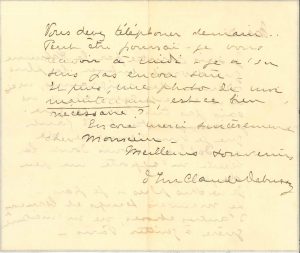 Vous devez téléphoner demain..
Peut être pourrai-je vous
à midi - je n'en
suis pas encore sûre
Et puis, une photo de moi
maintenant, est-ce bien
nécessaire ?
Encore merci sincèrement
cher Monsieur -
Meilleurs souvenirs
Claude Debussy